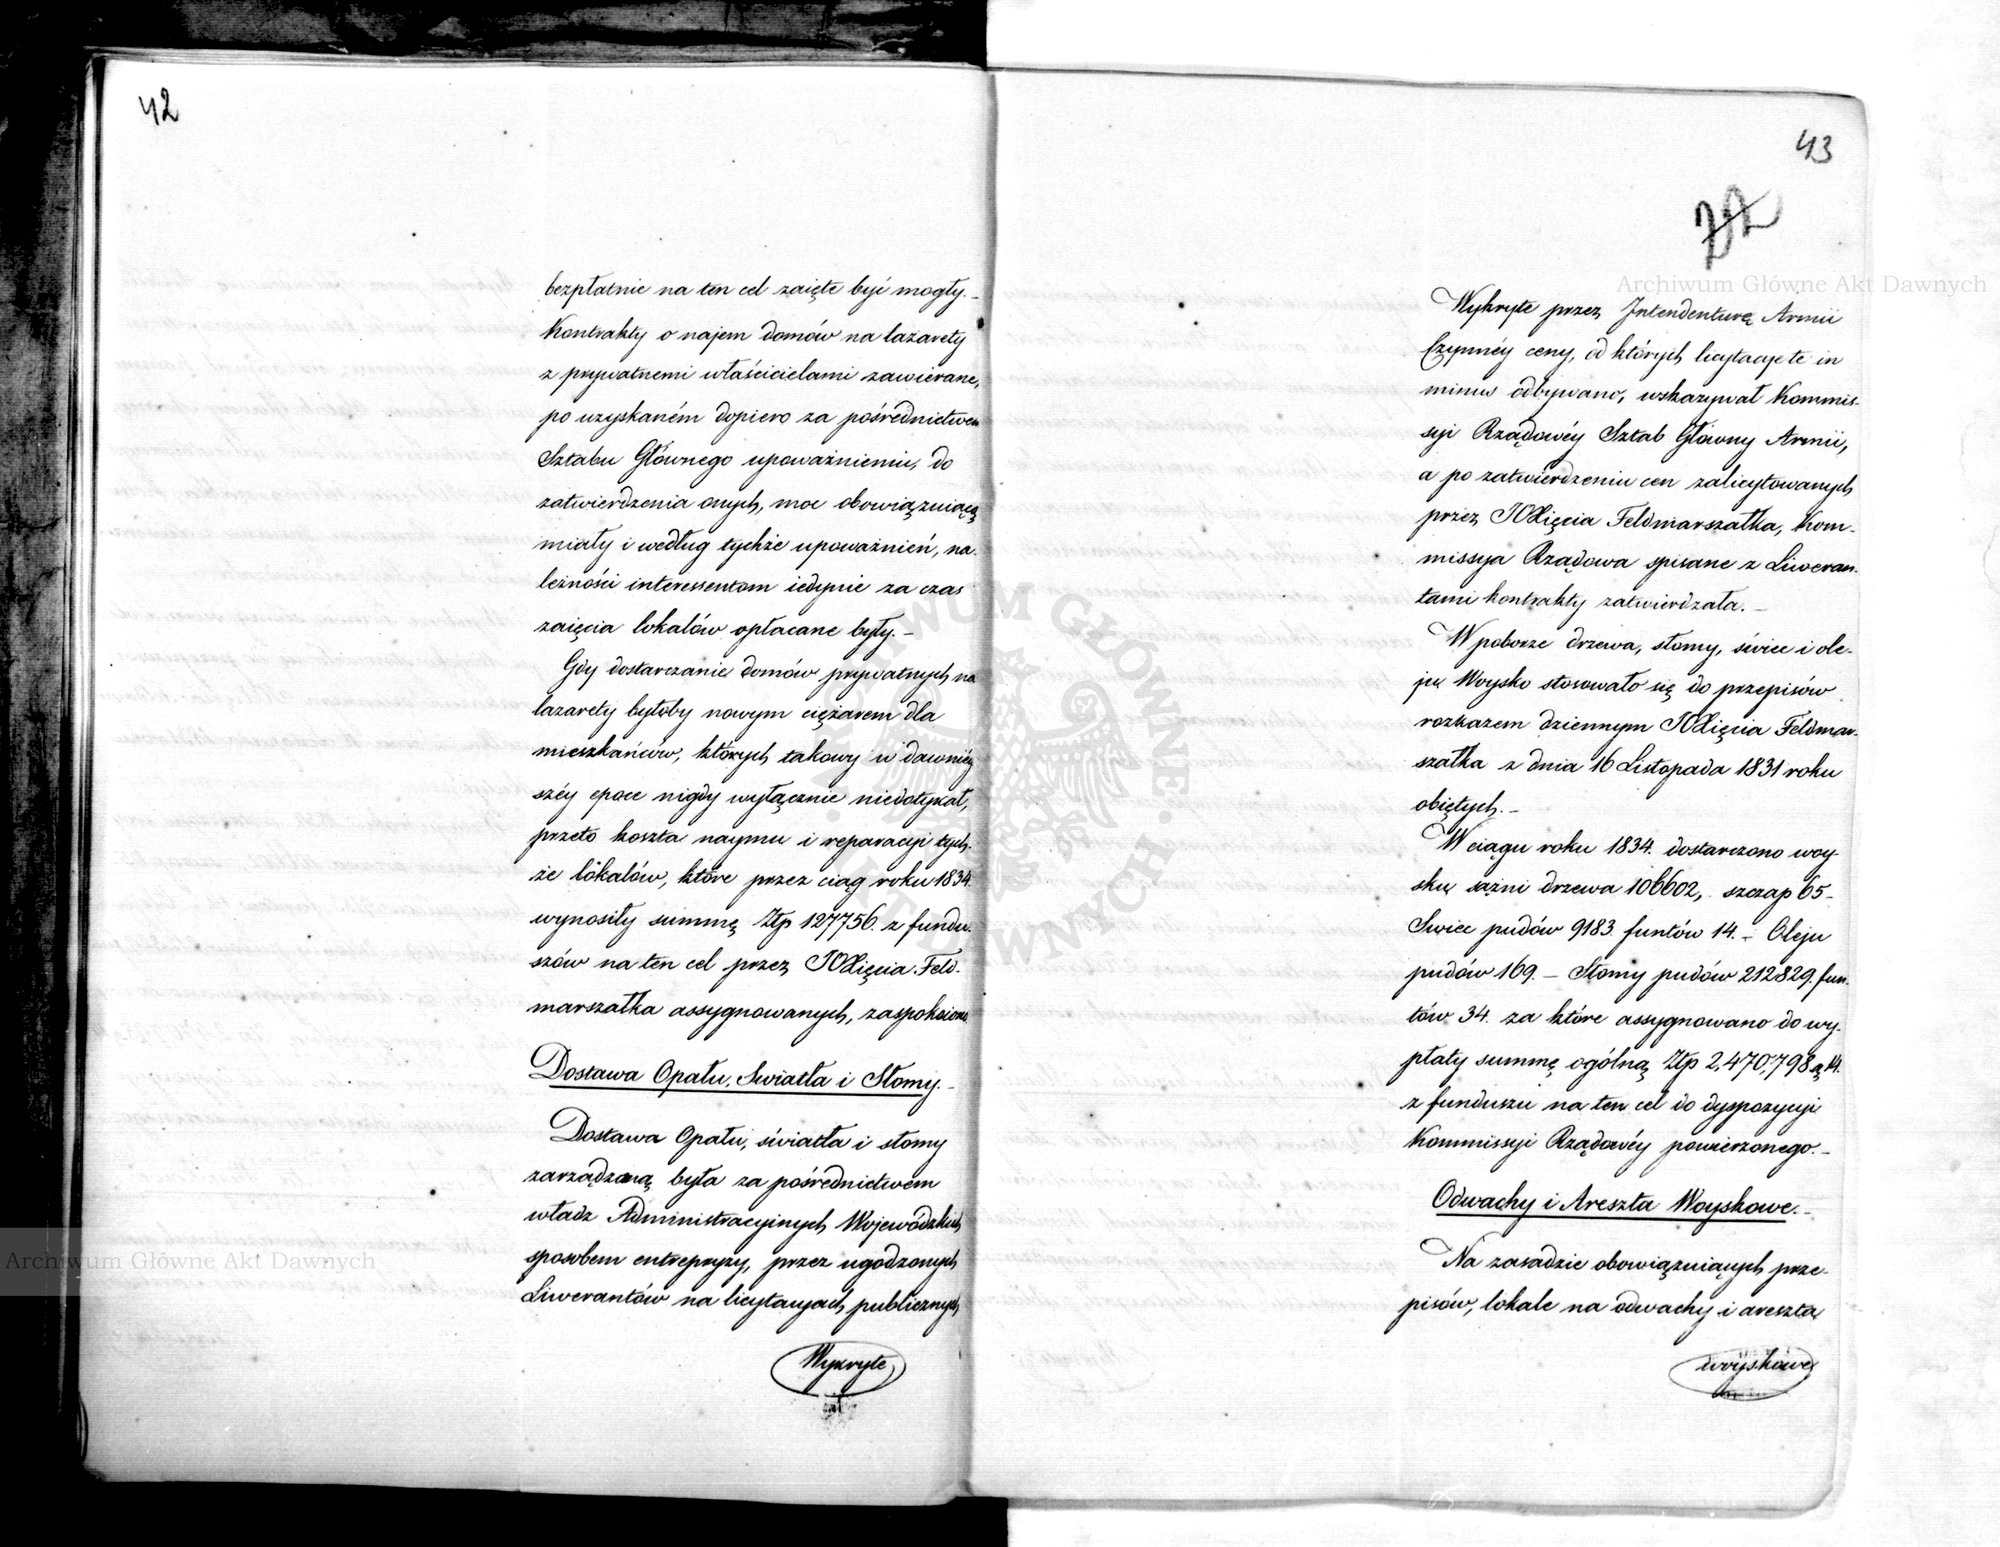 42
bezpłatnie na ten cel zaięte być mogły. –
Kontrakty o najem domów na lazarety
z prywatnemi właścicielami zawierane,
po uzyskaném dopiero za pośrednictwem
Sztabu Głównego upoważnieniu, do
zatwierdzenia onych, moc obowiązuiącą
miały i według tychże upoważnień, na-
leżności interessentom iedynie za czas
zaięcia lokalów opłacane były. –
Gdy dostarczanie domów prywatnych na
lazarety byłoby nowym ciężarem dla
mieszkańców, których takowy i w dawniéy
széy epoce nigdy wyłącznie niedotykał,
przeto koszta naymu i reparacyi tych-
że lokalów, które przez ciąg roku 1834.
wynosiły summę Złp 127756. z fundu-
szów na ten cel przez JOXięcia Feld-
marszałka assygnowanych, zaspokoiono.
Dostawa Opału, Swiatła i Słomy. –
Dostawa Opału, światła i słomy
zarządzaną była za pośrednictwem
władz Administracyinych Wojewódzkich
sposobem entrepryzy, przez ugodzonych
Liwerantów na licytacyach publicznych
Wykryte
43
Wykryte przez Intendenturę Armii
Czynnéy ceny, od których licytacye te in
minus odbywano, wskazywał Kommis-
syi Rządowéy Sztab Główny Armii,
a po zatwierdzeniu cen zalicytowanych
przez JOXięcia Feldmarszałka, Kom-
missya Rządowa spisane z Liweran-
tami kontrakty zatwierdzała. –
W poborze drzewa, słomy, świec i ole-
ju Woysko stosowało się do przepisów
rozkazem dziennym JOXięcia Feldmar-
szałka z dnia 16 Listopada 1831 roku
obiętych. –
W ciągu roku 1834. dostarczono woy-
sku sążni drzewa 106602, szczap 65 –
Swiec pudów 9183 funtów 14. – Oleju
pudów 169. – Słomy pudów 212829. fun-
tów 34. za które assygnowano do wy-
płaty summę ogólną Złp 2,470,798 g 14.
z funduszu na ten cel do dyspozycyi
Kommissyi Rządowéy powierzonego. –
Odwachy i Areszta Woyskowe. –
Na zasadzie obowiązuiących prze-
pisów, lokale na odwachy i areszta
woyskowe
Archiwum Główne Akt Dawnych
Archiwum Główne Akt Dawnych
ARCHIWUM GŁÓWNE AKT DAWNYCH